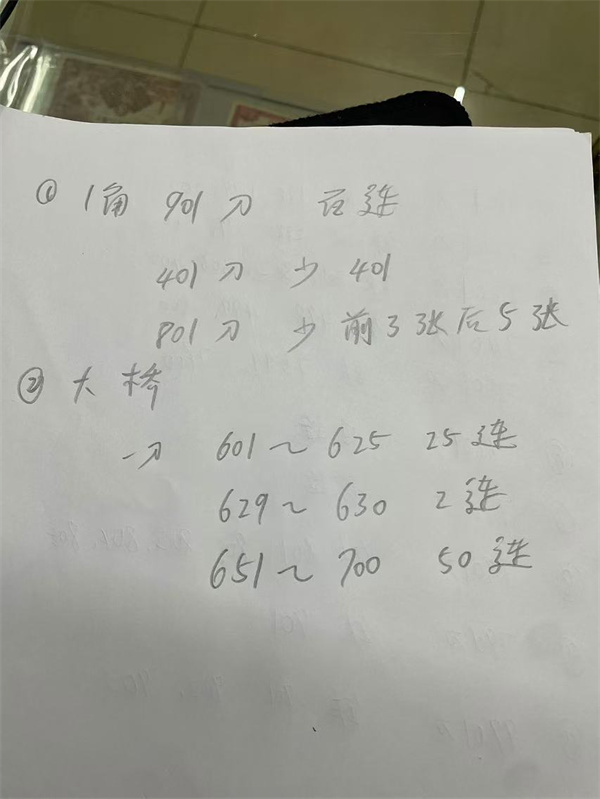 ① 1角 901刀 百连
401刀 少 401
801刀 少 前3张后5张
② 大桥
一刀 601~625 25连
629~630 2连
651~700 50连